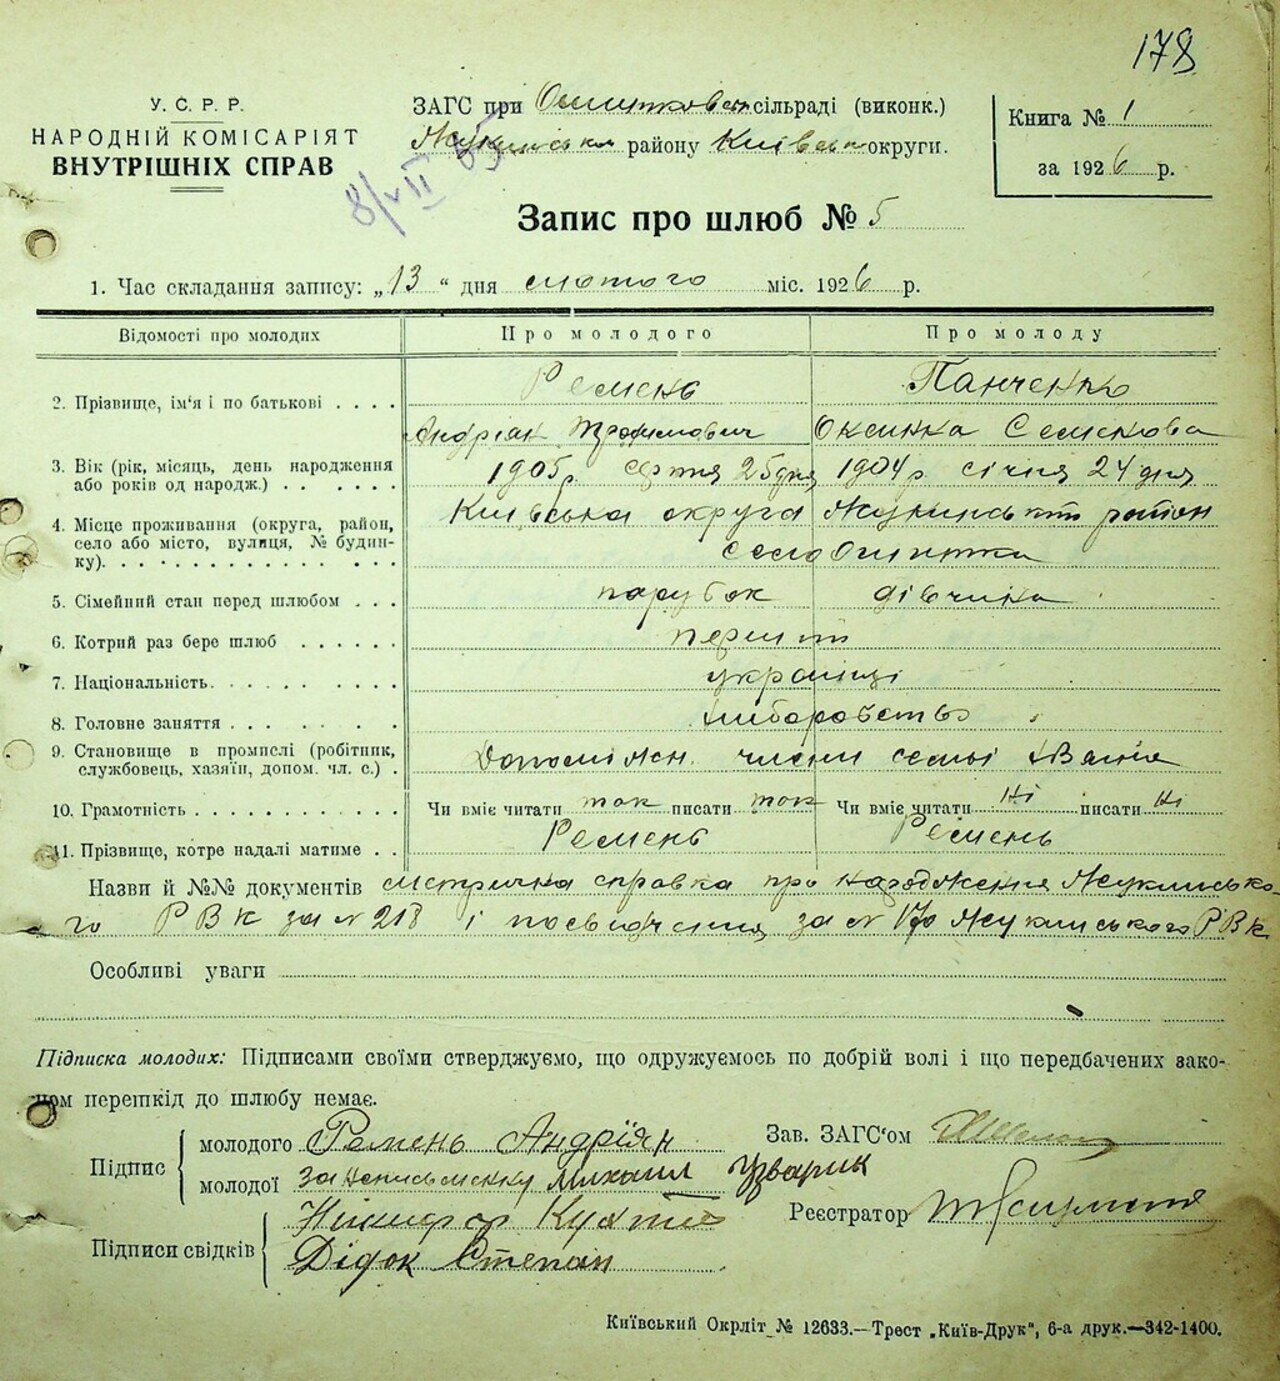 178
У. С. Р. Р.
НАРОДНІЙ КОМІСАРІЯТ
ВНУТРІШНІХ СПРАВ
ЗАГС при сільраді (виконк.)
району Київськ округи.
Книга № 1
за 1926 р.
8/VII
Запис про шлюб № 5
1. Час складання запису: „13“ дня лютого міс. 1926 р.
Відомості про молодих Про молодого Про молоду
2. Прізвище, ім‘я і по батькові . . . . Ремень Панченко
Андріян Трохимович Оксинка Семенова
3. Вік (рік, місяць, день народження
або років од народж.) . . . . . . 1905 р. серпня 25 дня 1904 р. січня 24 дня
4. Місце проживання (округа, район,
село або місто, вулиця, № будин-
ку). . . . . . . . . . . . . . . Київська округа Жукинський район
село Ошитки
5. Сімейний стан перед шлюбом . . . парубок дівчина
6. Котрий раз бере шлюб . . . . . . перший
7. Національність. . . . . . . . . . українці
8. Головне заняття . . . . . . . . хліборобство
9. Становище в промислі (робітник,
службовець, хазяїн, допом. чл. с.) . Допоміжн. члени семьі
10. Грамотність . . . . . . . . . . . Чи вміє читати так писати так Чи вміє читати ні писати ні
11. Прізвище, котре надалі матиме . . Ремень Ремень
Назви й №№ документів метрична справка про народження Жукинсько-
го РВК за № 218 і посвідчення за № 170 Жукинського РВК
Особливі уваги
Підписка молодих: Підписами своїми стверджуємо, що одружуємось по добрій волі і що передбачених зако-
ном перешкід до шлюбу немає.
Підпис молодого Ремень Андріян
молодої за неписьменну Михаил Узварик
Зав. ЗАГС‘ом
Реєстратор
Підписи свідків Никифор
Дідок Степан
Київський Окрліт № 12633.—Трест „Київ-Друк“, 6-а друк.—342-1400.